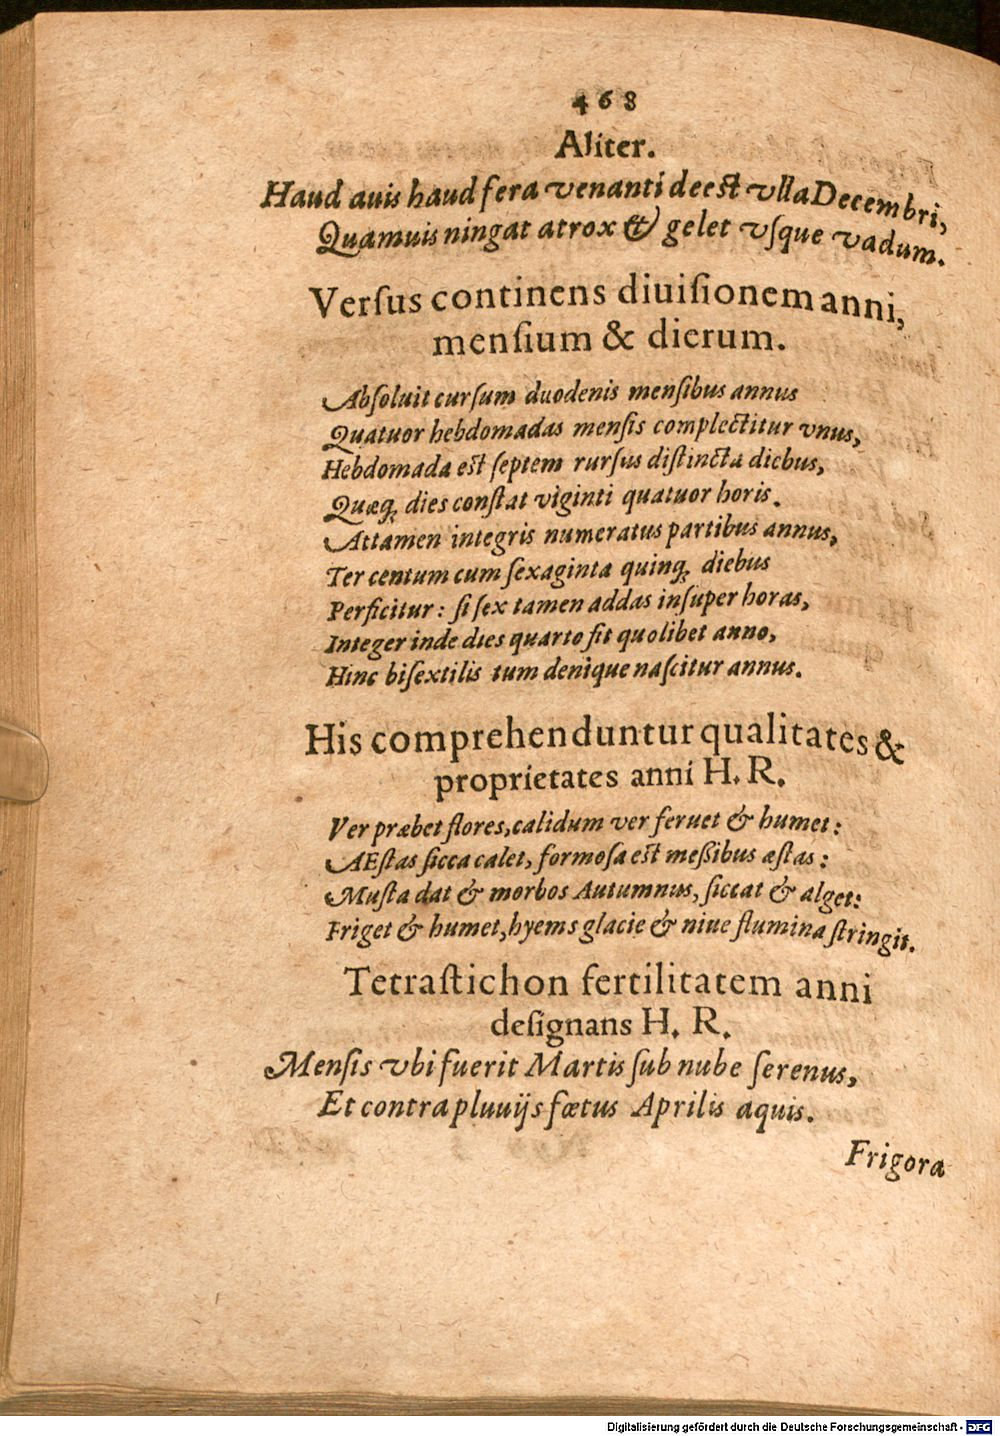 468
Aliter.
Haud auis haud fera venanti deest vlla Decembri,
Quamuis ningat atrox & gelet vſque vadum.
Verſus continens diuiſionem anni,
menſium & dierum.
Abſoluit curſum duodenis menſibus annus
Quatuor hebdomadas menſis complectitur vnus,
Hebdomada est ſeptem rurſus diſtincta diebus,
Quæq; dies conſtat viginti quatuor horis.
Attamen integris numeratus partibus annus,
Ter centum cum ſexaginta quinq; diebus
Perficitur: ſi ſex tamen addas inſuper horas,
Integer inde dies quarto fit quolibet anno,
Hinc biſextilis tum denique naſcitur annus.
His comprehenduntur qualitates &
proprietates anni H. R.
Ver præbet flores, calidum ver feruet & humet:
AEſtas ſicca calet, formoſa est meßibus æſtas:
Muſta dat & morbos Autumnus, ſiccat & alget:
Friget & humet, hyems glacie & niue flumina ſtringit.
Tetraſtichon fertilitatem anni
deſignans H. R.
Menſis vbi fuerit Martis ſub nube ſerenus,
Et contra pluuijs fœtus Aprilis aquis.
Frigora
Digitalisierung gefördert durch die Deutsche Forschungsgemeinschaft - DFG